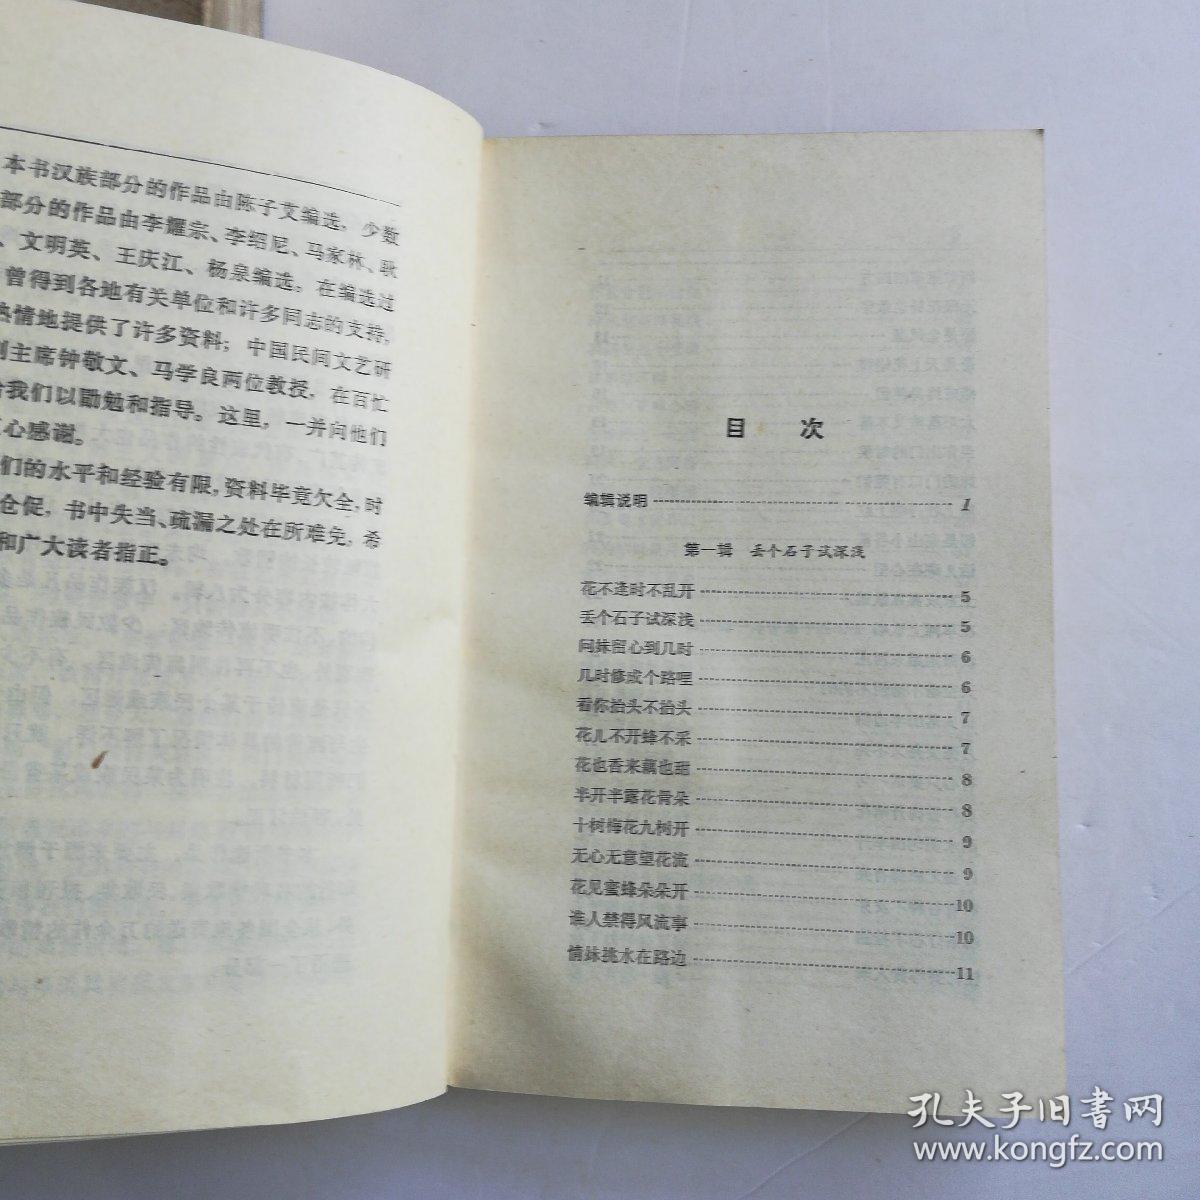 本书汉族部分的作品由陈子艾编选，少数
部分的作品由李耀宗、李绍尼、马家林、耿
、文明英、王庆江、杨泉编选。在编选过
曾得到各地有关单位和许多同志的支持，
热情地提供了许多资料；中国民间文艺研
副主席钟敬文、马学良两位教授，在百忙
给我们以勖勉和指导。这里，一并向他们
衷心感谢。
们的水平和经验有限，资料毕竟欠全，时
仓促，书中失当、疏漏之处在所难免，希
和广大读者指正。
目 次
编辑说明 1
第一辑 丢个石子试深浅
花不逢时不乱开 5
丢个石子试深浅 5
问妹留心到几时 6
几时修成个路哩 6
看你抬头不抬头 7
花儿不开蜂不采 7
花也香来藕也甜 8
半开半露花骨朵 8
十树梅花九树开 9
无心无意望花流 9
花见蜜蜂朵朵开 10
谁人禁得风流事 10
情妹挑水在路边 11
孔夫子旧书网
www.kongfz.com